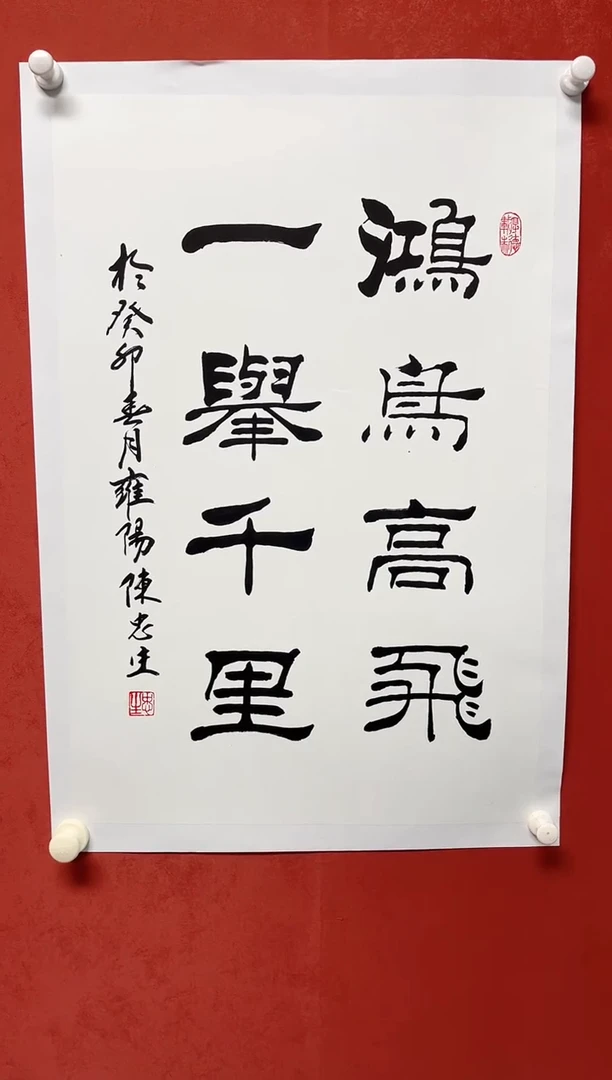 鴻鳥高飛
一舉千里
於癸卯春月雍陽陳忠生
忠生